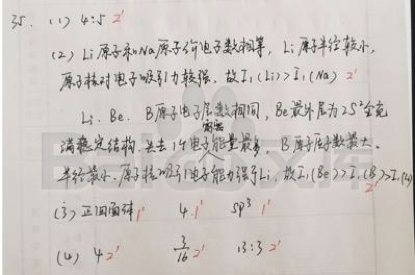 35. (1) 4:5 2'
(2) Li原子和Na原子价电子数相等，Li原子半径较小，
原子核对电子吸引力较强，故I₁(Li)>I₁(Na) 2'
Li、Be、B原子电子层数相同，Be最外层为2S²全充
满稳定结构，失去1个电子需要能量最多，B原子序数最大，
半径最小，原子核吸引电子能力强于Li，故I₁(Be)>I₁(B)>I₁(Li)
2'
(3) 正四面体 1' 4 1' sp³ 1'
(4) 4 2' 3/16 2' 13:3 2'